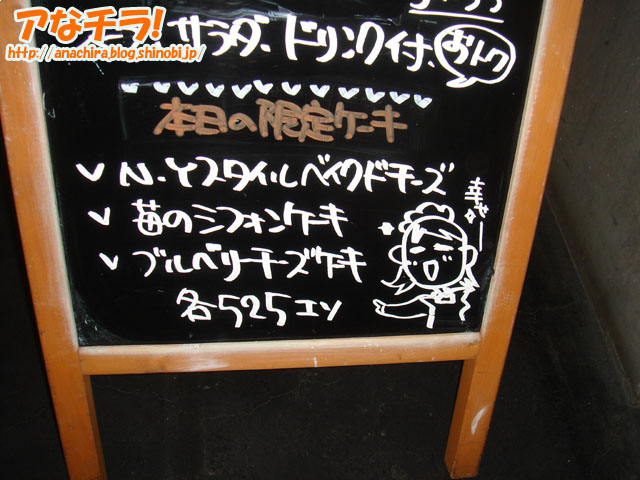 アなチラ!
http://anachira.blog.shinobi.jp/
サラダ、ドリンク付、おトク
本日の限定ケーキ
N.Yスタイルベイクドチーズ
苺のシフォンケーキ
ブルベリーチーズケーキ
各525エン
幸せー